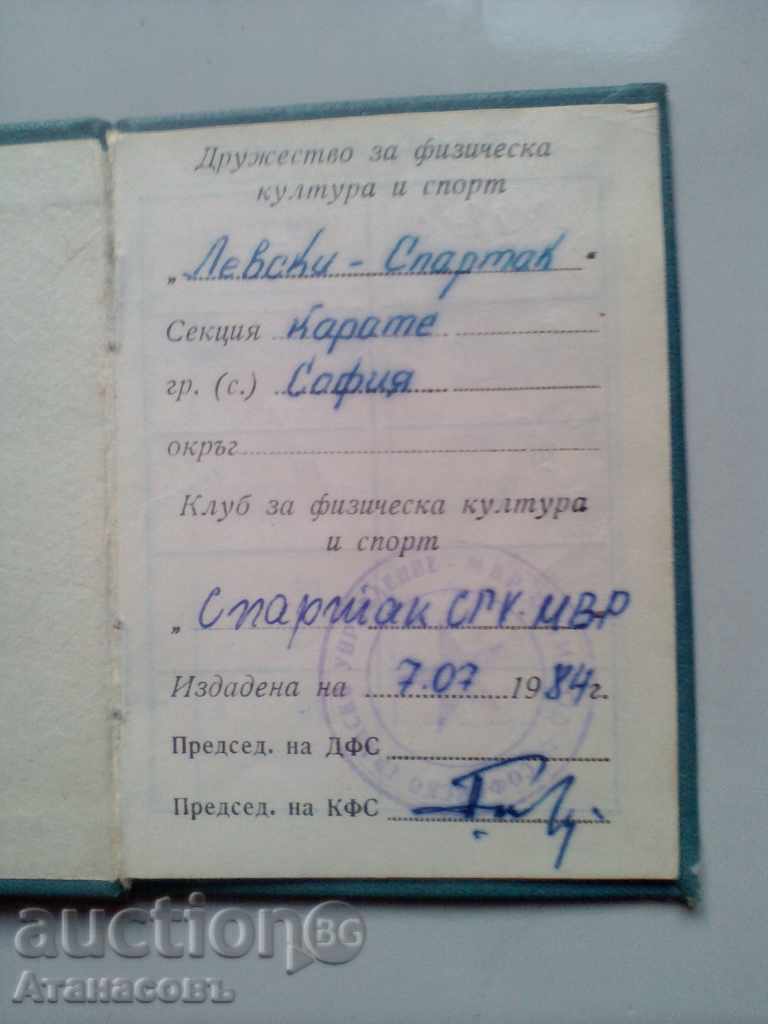 Дружество за физическа
култура и спорт
„Левски - Спартак"
Секция Карате
гр. (с.) София
окръг
Клуб за физическа култура
и спорт
„Спартак СГУ-МВР
Издадена на 7.07 1984 г.
Председ. на ДФС
Председ. на КФС
auction BG
Атанасовъ